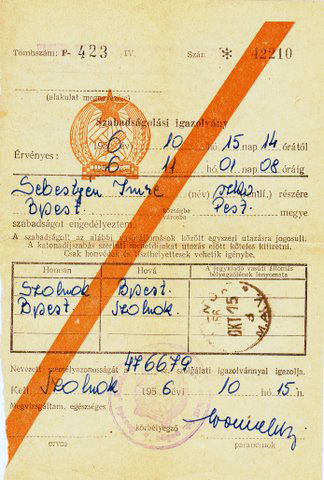 Tömbszám: F- 423 IV. Szám * 42210
(alakulat megnevezése)
Szabadságolási igazolvány
1956 évi 10 hó 15 nap 14 órától
Érvényes:
6 11 hó 01 nap 08 óráig
Sebestyén Imre (név) részére
Bpest. községbe városba Pest. megye
szabadságot engedélyeztem.
A szabadságolt az alábbi állomások között egyszeri utazásra jogosult.
A menetjegyet utazás előtt köteles kitölteni.
Csak honvédek és tiszthelyettesek vehetik igénybe.
Honnan Hová A jegykiadó vasúti állomás bélyegzőjének lenyomata
Szolnok Bpest.
Bpest. Szolnok
OKT 15
Nevezett személyazonosságát 476679 szolgálati igazolvánnyal igazolja.
Kelt Szolnok 1956 évi 10 hó 15 n.
Megvizsgáltam, egészséges
orvos körbélyegző parancsnok